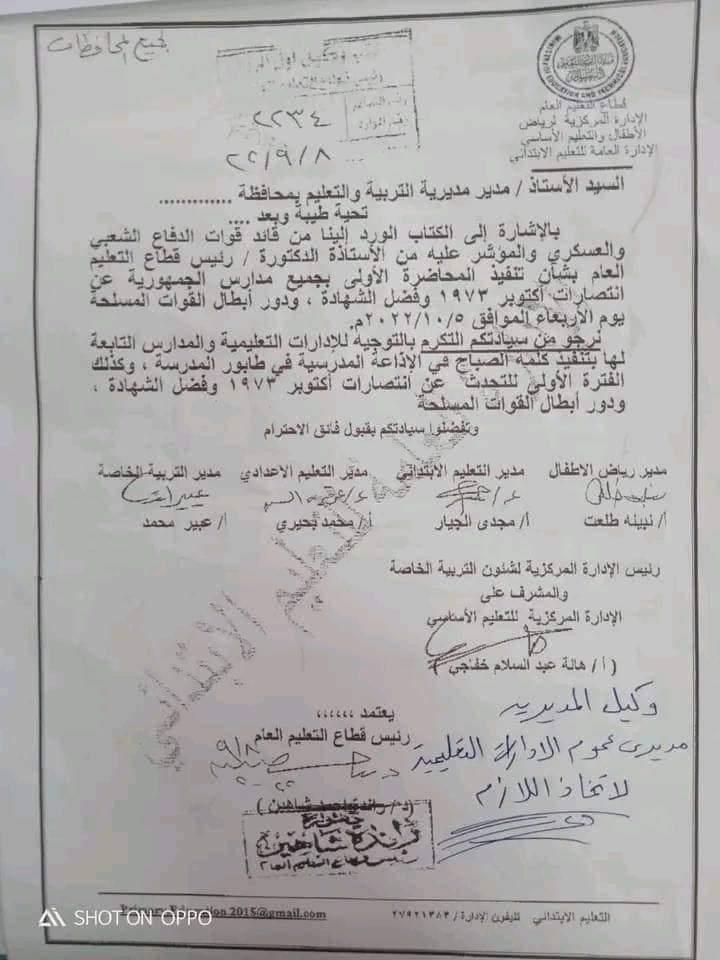 لجميع المحافظات
رئيس قطاع التعليم
٢٢٣٤
٢٢/٩/٨
MINISTRY OF EDUCATION AND TECHNICAL EDUCATION
قطاع التعليم العام
الإدارة المركزية لرياض
الأطفال والتعليم الأساسي
الإدارة العامة للتعليم الابتدائي
السيد الأستاذ / مدير مديرية التربية والتعليم بمحافظة .............
تحية طيبة وبعد ....
بالإشارة إلى الكتاب الورد إلينا من قائد قوات الدفاع الشعبي
والعسكري والمؤشر عليه من الأستاذة الدكتورة / رئيس قطاع التعليم
العام بشأن تنفيذ المحاضرة الأولى بجميع مدارس الجمهورية عن
انتصارات أكتوبر ١٩٧٣ وفضل الشهادة ، ودور أبطال القوات المسلحة
يوم الأربعاء الموافق ٢٠٢٢/١٠/٥م.
نرجو من سيادتكم التكرم بالتوجيه للإدارات التعليمية والمدارس التابعة
لها بتنفيذ كلمة الصباح في الإذاعة المدرسية في طابور المدرسة ، وكذلك
الفترة الأولي للتحدث عن انتصارات أكتوبر ١٩٧٣ وفضل الشهادة ،
ودور أبطال القوات المسلحة
وتفضلوا سيادتكم بقبول فائق الاحترام
مدير رياض الاطفال مدير التعليم الابتدائي مدير التعليم الاعدادي مدير التربية الخاصة
أ/ نبيله طلعت أ/ مجدى الجيار أ/ محمد بحيري أ/ عبير محمد
رئيس الإدارة المركزية لشئون التربية الخاصة
والمشرف على
الإدارة المركزية للتعليم الأساسي
( أ / هالة عبد السلام خفاجي )
وكيل المديرية
مديرى عموم الادارات التعليمية
لاتخاذ اللازم
يعتمد ،،،،،،
رئيس قطاع التعليم العام
٩/٨
(د/ راندة أحمد شاهين )
راندة شاهين
رئيس قطاع التعليم العام
التعليم الابتدائي
التعليم الابتدائي تليفون الإدارة / ٢٧٩٢١٣٨٣ Primary.Education.2015@gmail.com
SHOT ON OPPO